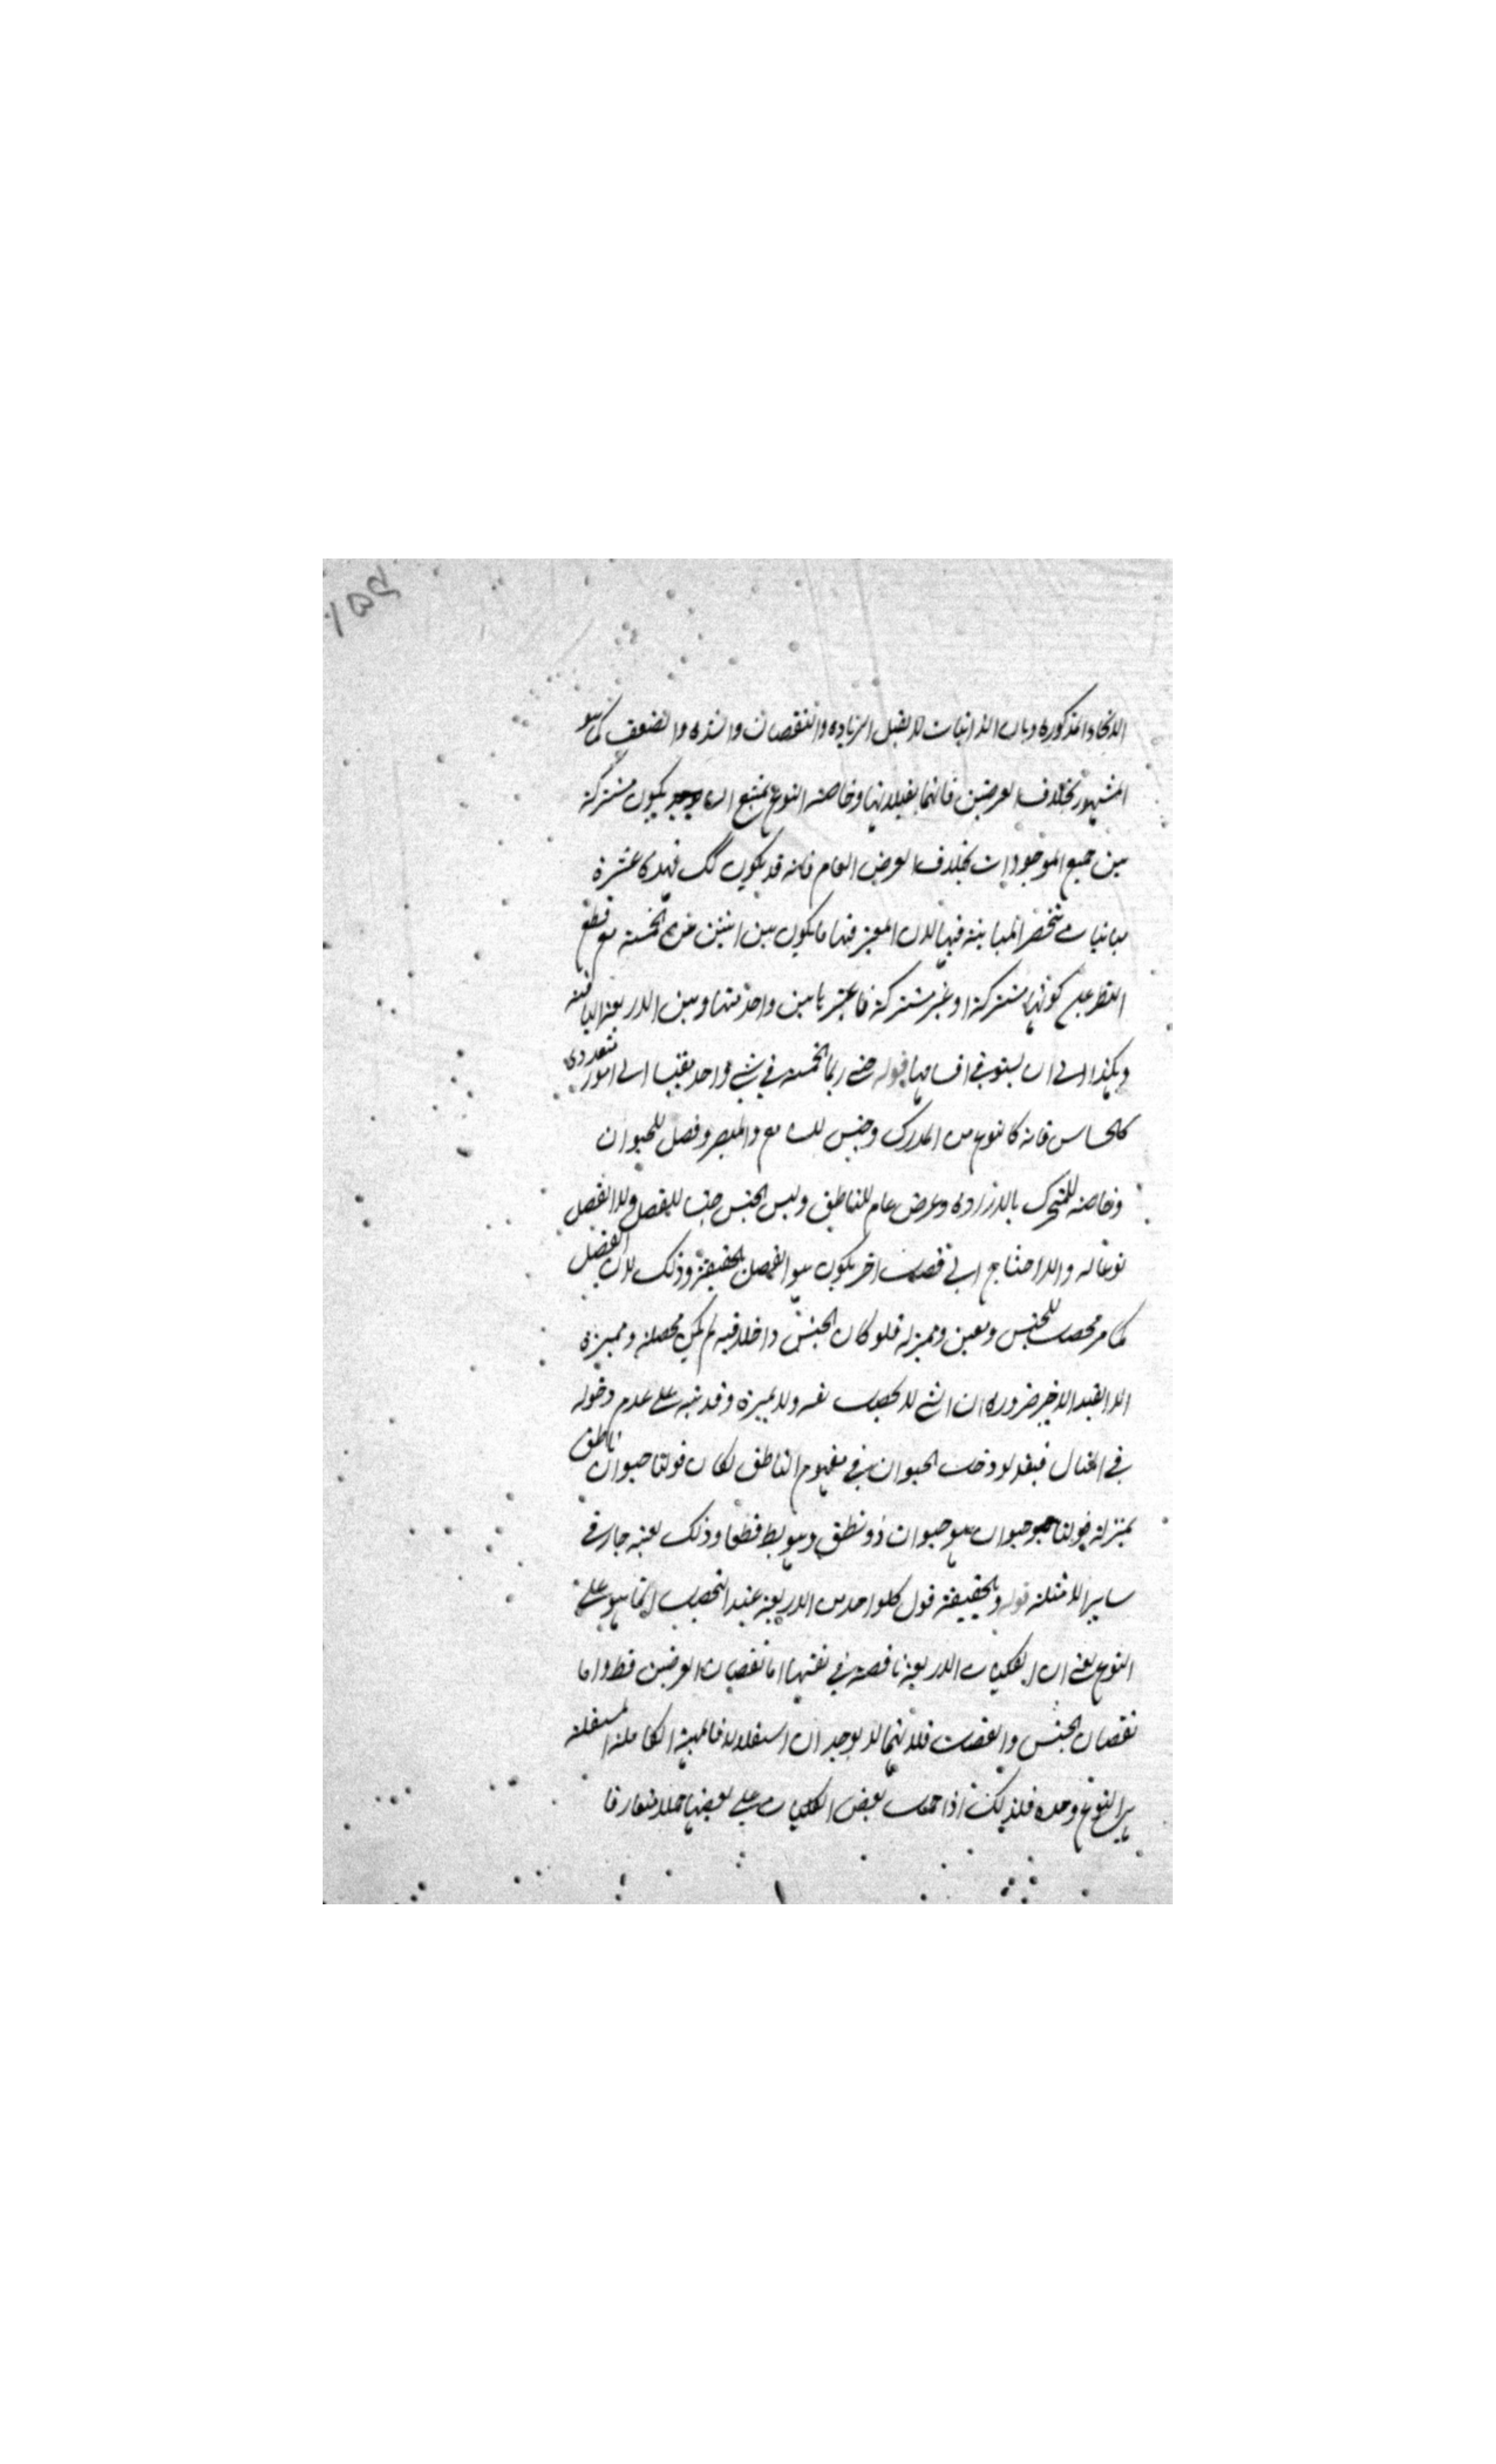 ١٥٤
الاتحاد المذكوره وبان الذاتيات لا يقبل الزياده والنقصان والشده والضعف كما هو
المشهور بخلاف العرضين فانهما يقبلانها وخاصه النوع يمتنع ان يكون مشتركة
بين جميع الموجودات بخلاف العرض العام فانه قد يكون كك فهذه عشرة
مباينات تنحصر المباينة فيها لان المعتبر فيها ما يكون بين اثنين من الخمسه مع قطع
النظر عن كونها مشتركة او غير مشتركة فاعتبر ما بين واحد منها وبين الاربعة الباقيه
وهكذا الى ان يستوفى اقسامها قوله حتى ربما الخمسه في شي واحد بقياس الى امور متعددى
كالحساس فانه كالنوع من المدرك وجنس للسامع والمبصر وفصل للحيوان
وخاصه للمتحرك بالاراده وعرض عام للناطق وليس الجنس جنسا للفصل ولا الفصل
نوعا له والا احتاج الى فصل اخر يكون هو الفصل بالحقيقة وذلك لان الفصل
كما مر محصل للجنس ومعين ومميز له فلو كان الجنس داخلا فيه لم يكن محصله ومميزه
الا القيد الاخير ضروره ان الشي لا يحصل نفسه ولا يميزه وقد نبه على عدم دخوله
في المثال فبقوله لو دخل الحيوان في مفهوم الناطق لكان قولنا حيوان ناطق
بمنزله قولنا حيوان هو حيوان ذو نطق وهو بط قطعا وذلك بعينه جار في
ساير الامثلة قوله وبالحقيقة قول كل واحد من الاربعة عند التحصيل انما هو على
النوع يعني ان الكليات الاربعة ناقصة في نفسها اما نقصان العرضين فط واما
نقصان الجنس والفصل فلانهما لا يوجدان استقلالا فالمهية الكاملة المستقلة
هى النوع وحده فلذلك اذا حمل بعض الكليات على بعضها حملا متعارفا